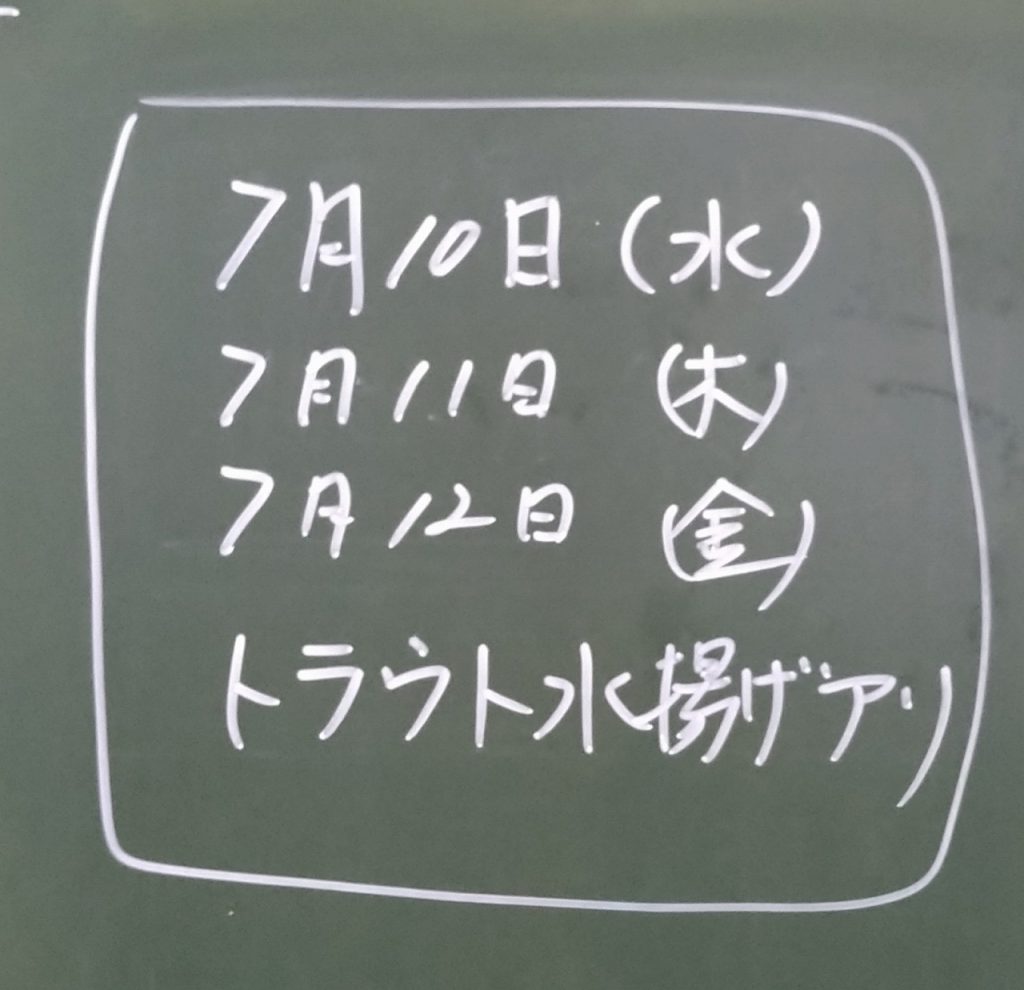 7月10日(水)
7月11日(木)
7月12日(金)
トラウト水揚げアリ